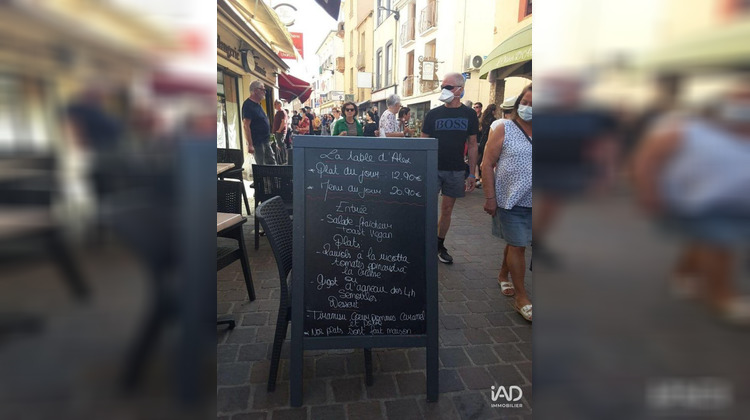 La table d'Alex
- Plat du jour : 12.90€
- Menu du jour 20.90€
Entrée
- Salade fraîcheur
toast vegan
Plats
- Raviolis à la ricotta
tomates épinard à
la crème
ou
- Gigot d'agneau des 4h
Semoules
Dessert
- Tiramisu Coeur pommes Caramel
- Nos plats sont fait maison
BOSS
iAD
IMMOBILIER